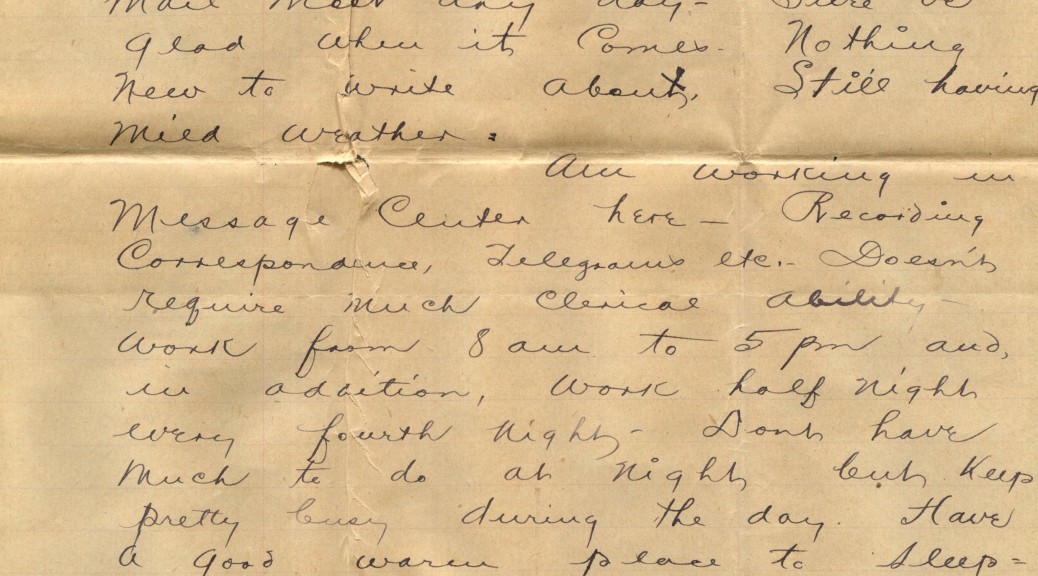 Mail most any day - Sure be
glad when it comes. Nothing
New to write about, Still having
Mild weather.
Am working in
Message Center here - Recording
Correspondence, Telegrams etc. - Doesn't
require much Clerical ability -
Work from 8 am to 5 pm and,
in addition, work half night
every fourth night - Dont have
Much to do at night, but keep
pretty busy during the day. Have
a good warm place to sleep =